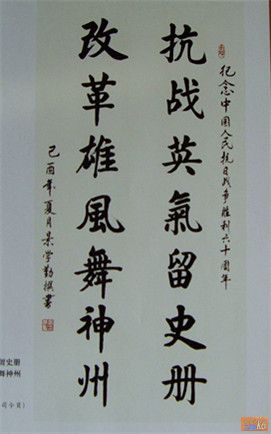 纪念中国人民抗日战争胜利六十周年
抗战英氣留史册
改革雄風舞神州
己酉年夏月学勤撰书
留史册
舞神州